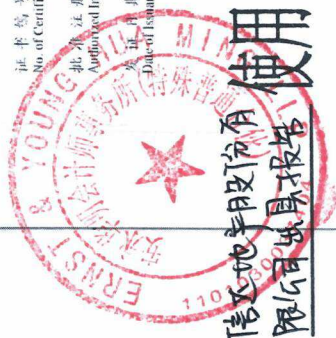 证 书 编
No. of Certifi
批 准 注 册
Authorized In
发 证 日 期
Date of Issuan
ERNST & YOUNG HUA MING
安永华明会计师事务所(特殊普通
信达地产股份有
限公司出具报告
使用